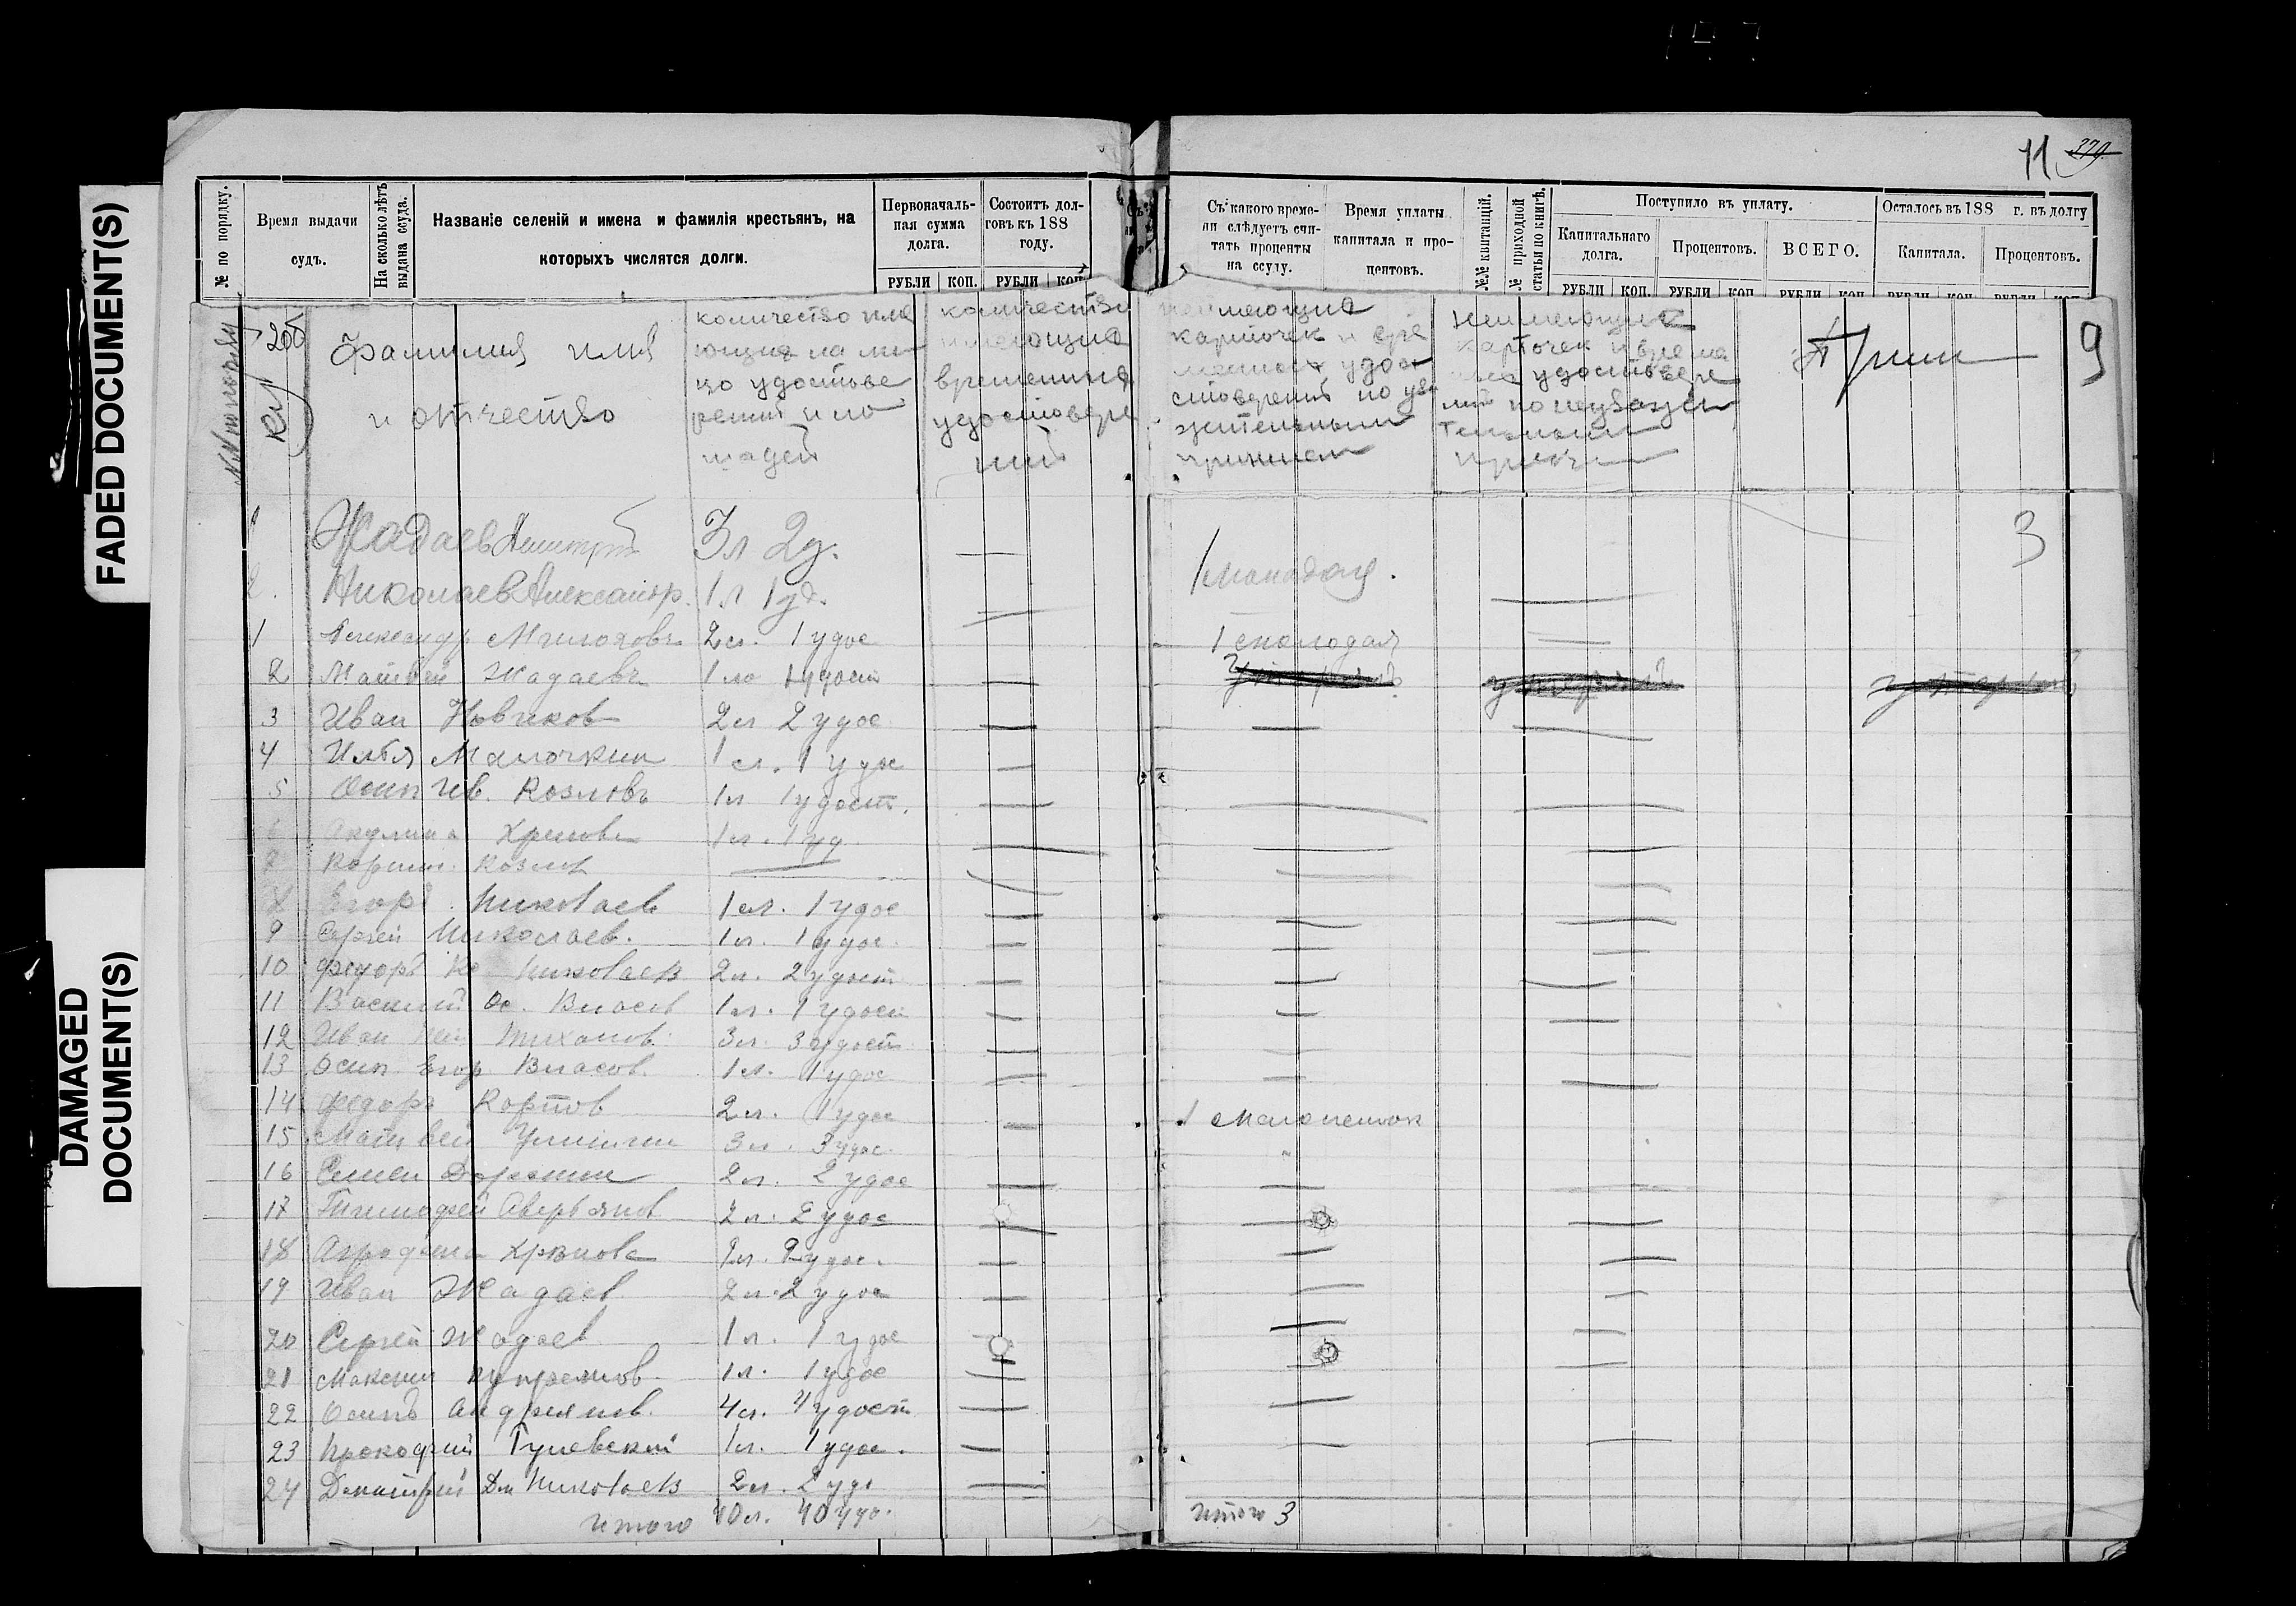 FADED DOCUMENT(S)
DAMAGED
DOCUMENT(S)
11 379.
№ по порядку.
Время выдачи
судъ.
На сколько лѣтъ
выдана ссуда.
Названіе селеній и имена и фамилія крестьянъ, на
которыхъ числятся долги.
Первоначаль-
ная сумма
долга.
Состоитъ дол-
говъ къ 188
году.
РУБЛИ КОП. РУБЛИ КОП
Съ какого време-
ни слѣдуетъ счи-
тать проценты
на ссуду.
Время уплаты
капитала и про-
центовъ.
№№ квитанцій.
№ приходной
статьи по книгѣ.
Поступило въ уплату.
Капитальнаго
долга.
Процентовъ.
ВСЕГО.
РУБЛИ КОП. РУБЛИ КОП РУБЛИ КОП
Осталось въ 188 г. въ долгу
Капитала.
Процентовъ.
фамилия имя
и отчество
количество име
ющия на ли
цо удостове
рений и ло
шадей
количество
имеющие
временные
удостовере
ний
неимеющие
карточек и вре
менных удос
стоверений по ува
жительным
причинам
неимеющие
карточек и време
удостовере
ний по неуважи
тельным
причи
Прим
9
1 Жадаев Дмитрий 3л 2у. —
3
2. Николаев Александр. 1л 1уд.
1 молодая.
1 Александр Милохов 2л. 1 удос
1 молодая
2 Матвей Жадаевъ 1 ло 1 удост —
3 Иван Новиков 2л 2 удос — — —
4 Илья Малочкин 1 л. 1 удос —
5 Осип Ив. Козловъ 1л 1 удост. — — —
6 Акулина Хренова 1л. 1 уд — — —
7 Козлов — — — —
8 Егор Николаев 1л. 1 удос — — —
9 Сергей Николаев. 1л. 1 удос. — — —
10 Федоръ Николаев 2л. 2 удост — — —
11 Василий Ос. Власов 1л. 1 удост — — —
12 Иван Тиханов 3л. 3 удост — — —
13 Осип Егор Власов. 1л. 1 удос — — —
14 Федоръ Корпов 2л. 1 удос — 1 малолеток
15 Матвей 3л. 3 удос.
16 Семен Доронин 2л. 2 удос — — —
17 Тимофей Аверьянов 2л. 2 удос — — —
18 Аграфена Хренова 2л. 2 удос. — — —
19 Иван Жадаев 2л. 2 удос — — —
20 Сергей Жадаев 1л. 1 удос — — —
21 Максим Куприянов. 1л. 1 удос — — —
22 Осипъ Андриянов. 4л. 4 удост — —
23 Прокофий Гулевский 1л. 1 удос. — — —
24 Дмитрий Дм Николаев 2л. 2 удо —
итого 40л. 40 удо. итого 3